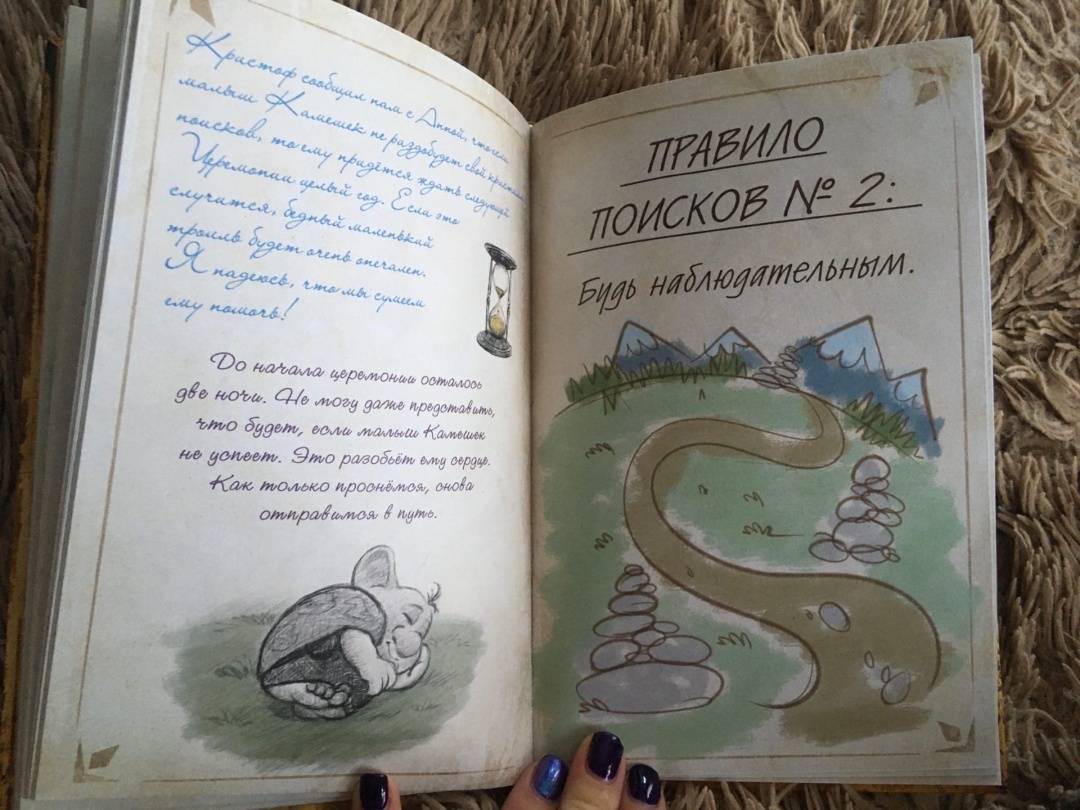 Кристоф сообщил нам с Анной, что если
малыш Камешек не раздобудет свой кристалл
поисков, то ему придётся ждать следующей
Церемонии целый год. Если это
случится, бедный маленький
тролль будет очень опечален.
Я надеюсь, что мы сумеем
ему помочь!
До начала церемонии осталось
две ночи. Не могу даже представить,
что будет, если малыш Камешек
не успеет. Это разобьёт ему сердце.
Как только проснёмся, снова
отправимся в путь.
ПРАВИЛО
ПОИСКОВ № 2:
Будь наблюдательным.